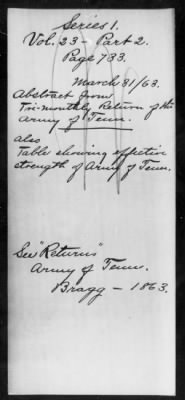 Series 1.
Vol. 23 - Part 2.
Page 733.
March 31/63.
Abstract from
Tri-monthly Return of the
Army of Tenn.
also
Table showing effective
strength of Army of Tenn.
See "Returns"
Army of Tenn.
Bragg - 1863.